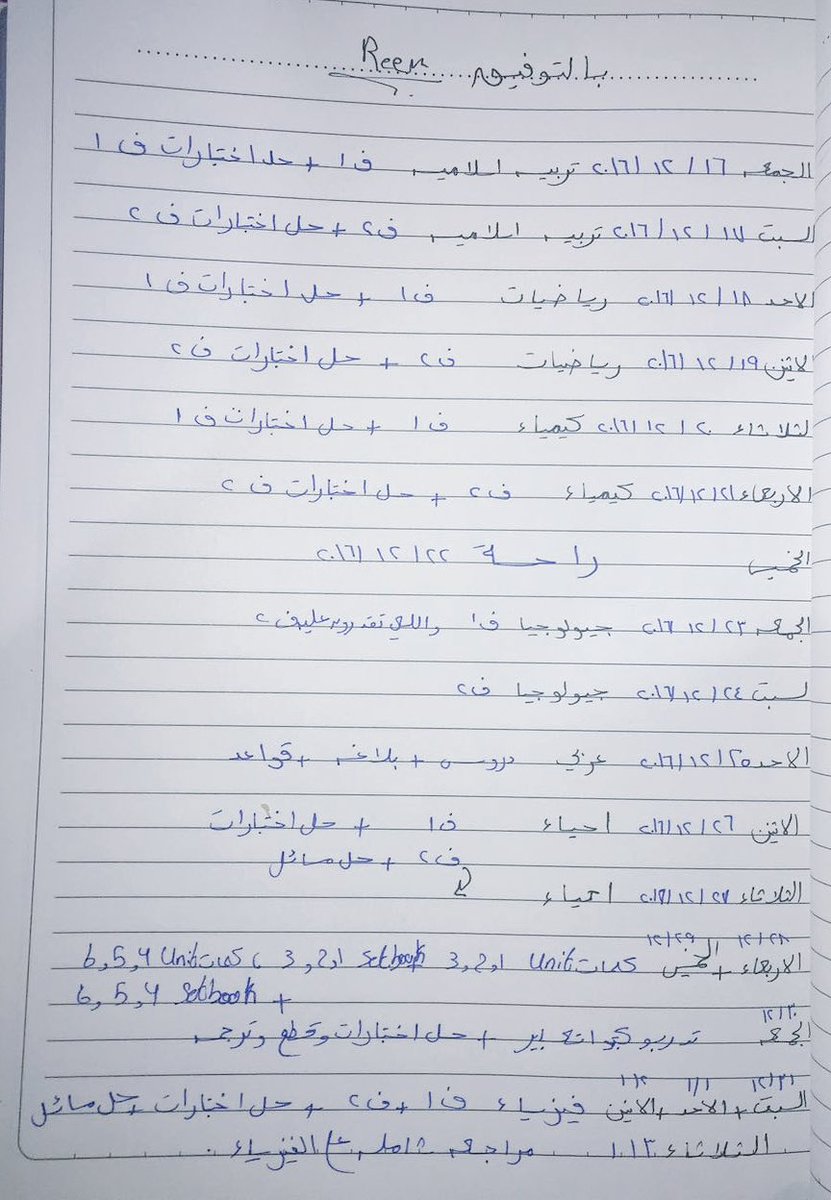 بالتوفيق Reem
الجمعه ١٦ / ١٢ / ٢٠١٦ تربيه اسلاميه ف١ + حل اختبارات ف١
السبت ١٧ / ١٢ / ٢٠١٦ تربيه اسلاميه ف٢ + حل اختبارات ف٢
الاحد ١٨ / ١٢ / ٢٠١٦ رياضيات ف١ + حل اختبارات ف١
الاثنين ١٩ / ١٢ / ٢٠١٦ رياضيات ف٢ + حل اختبارات ف٢
لثلاثاء ٢٠ / ١٢ / ٢٠١٦ كيمياء ف١ + حل اختبارات ف١
الاربعاء ٢١ / ١٢ / ٢٠١٦ كيمياء ف٢ + حل اختبارات ف٢
الخميس راحة ٢٢ / ١٢ / ٢٠١٦
الجمعه ٢٣ / ١٢ / ٢٠١٦ جيولوجيا ف١ واللي تقدرون عليه ف٢
لسبت ٢٤ / ١٢ / ٢٠١٦ جيولوجيا ف٢
الاحد ٢٥ / ١٢ / ٢٠١٦ عربي دروس + بلاغه + قواعد
الاثنين ٢٦ / ١٢ / ٢٠١٦ احياء ف١ + حل اختبارات
ف٢ + حل مسائل
الثلاثاء ٢٧ / ١٢ / ٢٠١٦ احياء
١٢/٢٨ الى ١٢/٢٩
الاربعاء + الخميس كلمات Unit 3,2,1 Setbook 3,2,1 ، كلمات Unit 6,5,4
+ Setbook 6,5,4
١٢/٣٠
الجمعه تدربو تعابير + حل اختبارات وقطع وترجمه
١٢/٣١ ١/١ ١/٢
السبت + الاحد + الاثنين فيزياء ف١ + ف٢ + حل اختبارات + حل مسائل
الثلاثاء ١/٣ مراجعه شامله ع الفيزياء .